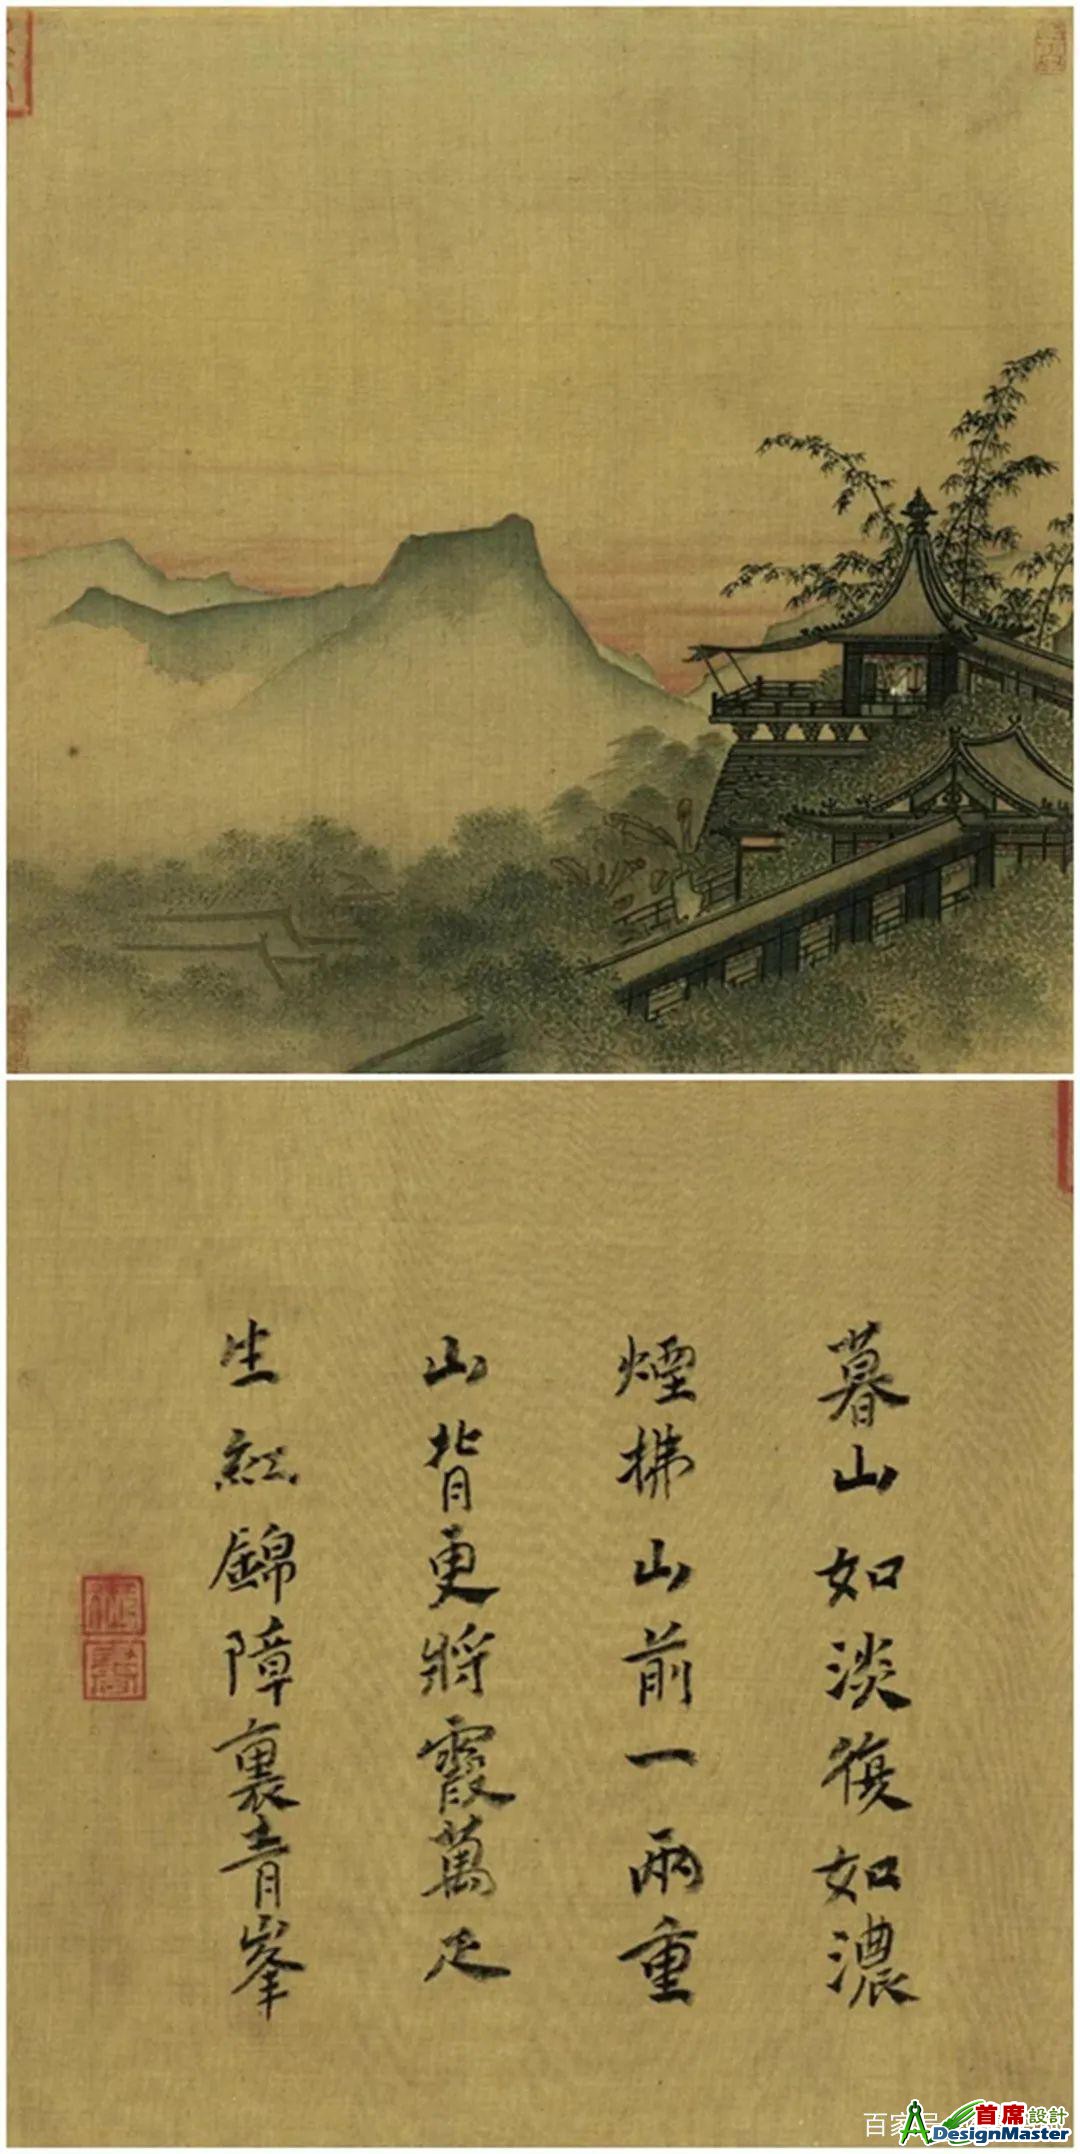 暮山如淡復如濃
煙拂山前一兩重
山背更將霞萬疋
生紅錦障裏青峯
百家号
首席設計
ADesignMaster